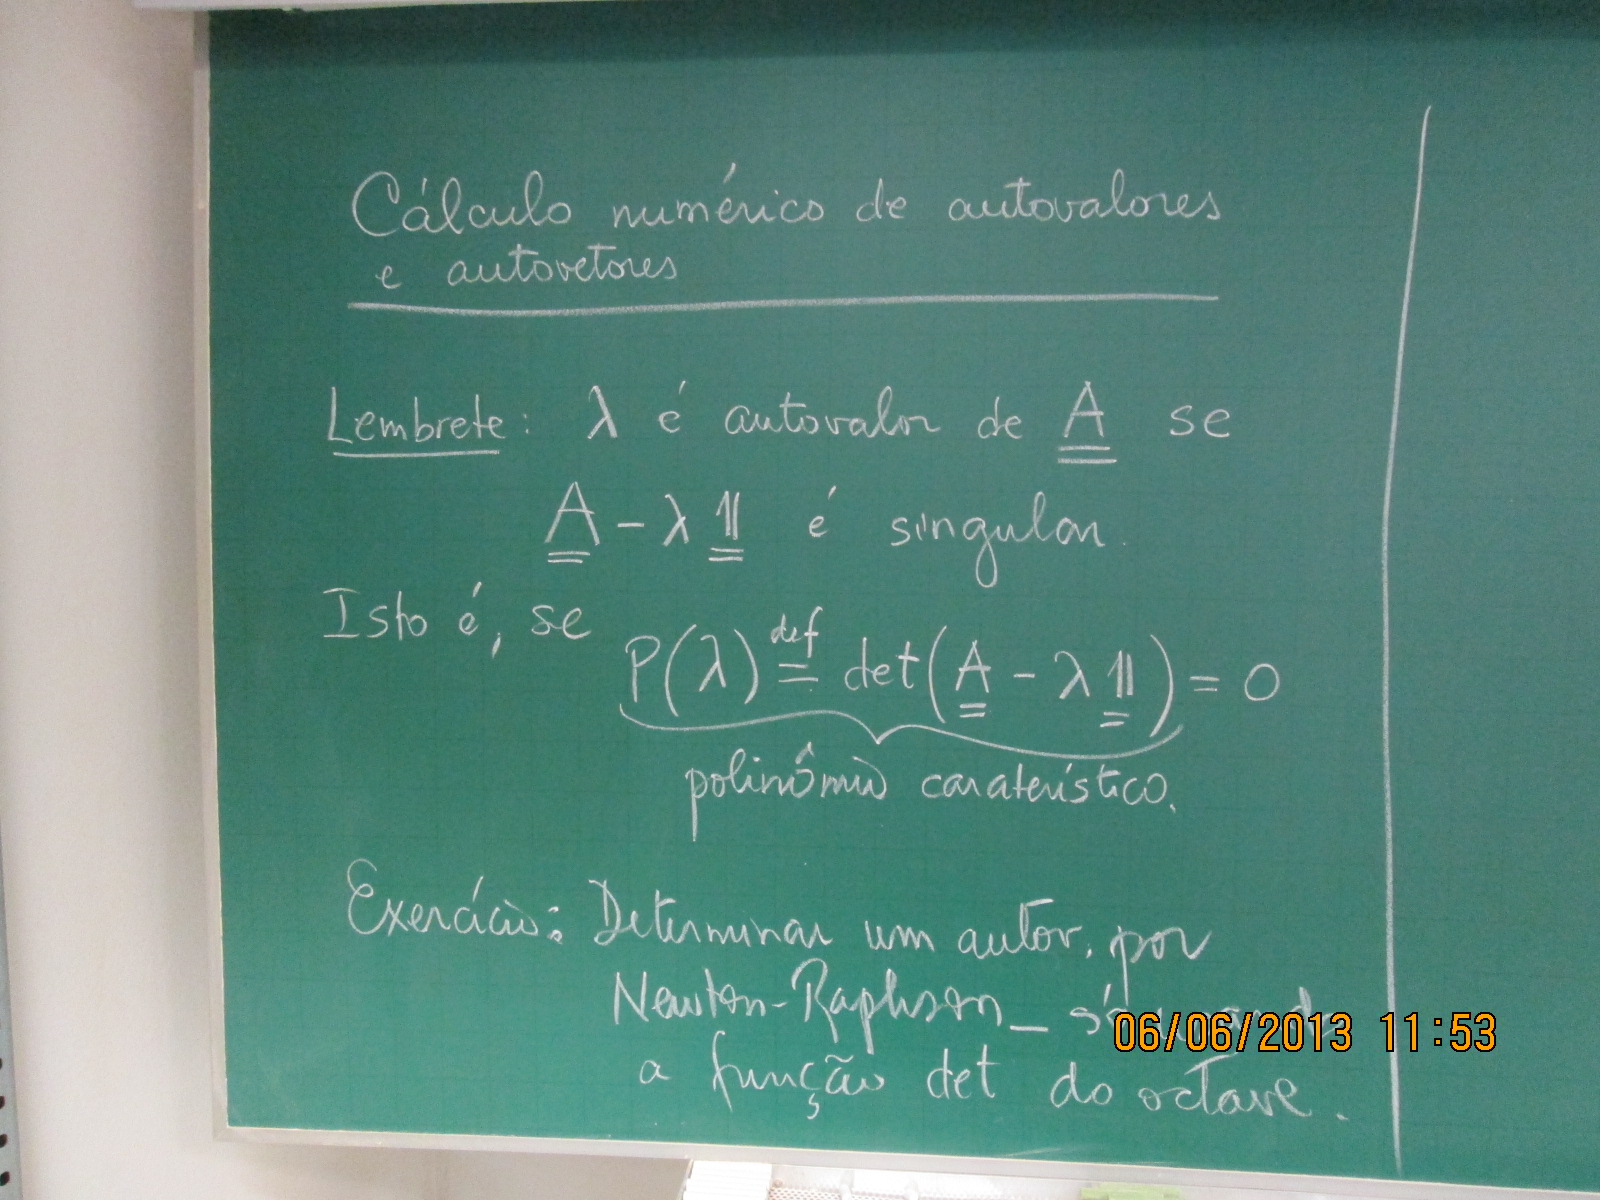 Cálculo numérico de autovalores
e autovetores
Lembrete: λ é autovalor de A se
A - λ 1 é singular.
Isto é, se
P(λ) def= det(A - λ 1) = 0
polinômio caraterístico.
Exercício: Determinar um autov. por
Newton-Raphson_ só
06/06/2013 11:53
a função det do octave.